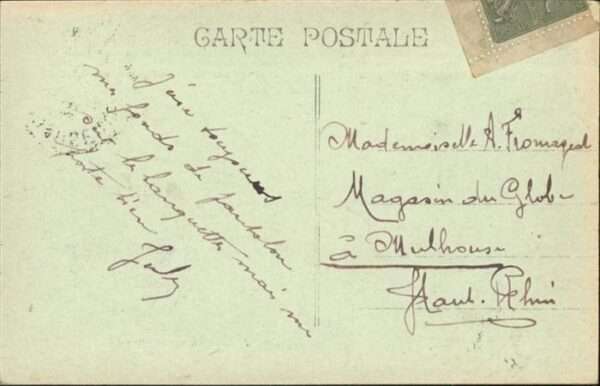 CARTE POSTALE
J'use toujours
mes fonds de pantalon
sur la banquette mais me
porte bien
Jules
Mademoiselle A. Fromaged
Magasin du Globe
à Mulhouse
Haut-Rhin